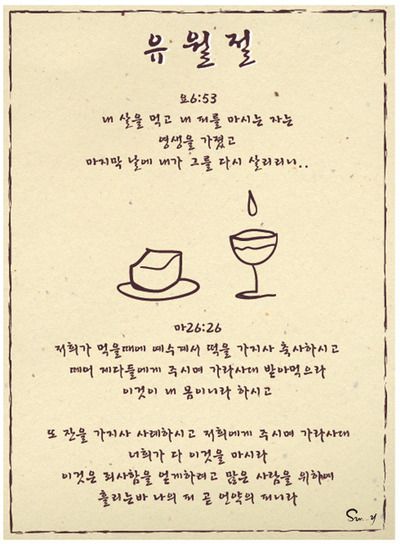 유월절
요6:53
내 살을 먹고 내 피를 마시는 자는
영생을 가졌고
마지막 날에 내가 그를 다시 살리리니..
마26:26
저희가 먹을때에 예수께서 떡을 가지사 축사하시고
떼어 제자들에게 주시며 가라사대 받아먹으라
이것이 내 몸이니라 하시고
또 잔을 가지사 사례하시고 저희에게 주시며 가라사대
너희가 다 이것을 마시라
이것은 죄사함을 얻게하려고 많은 사람을 위하여
흘리는바 나의 피 곧 언약의 피니라